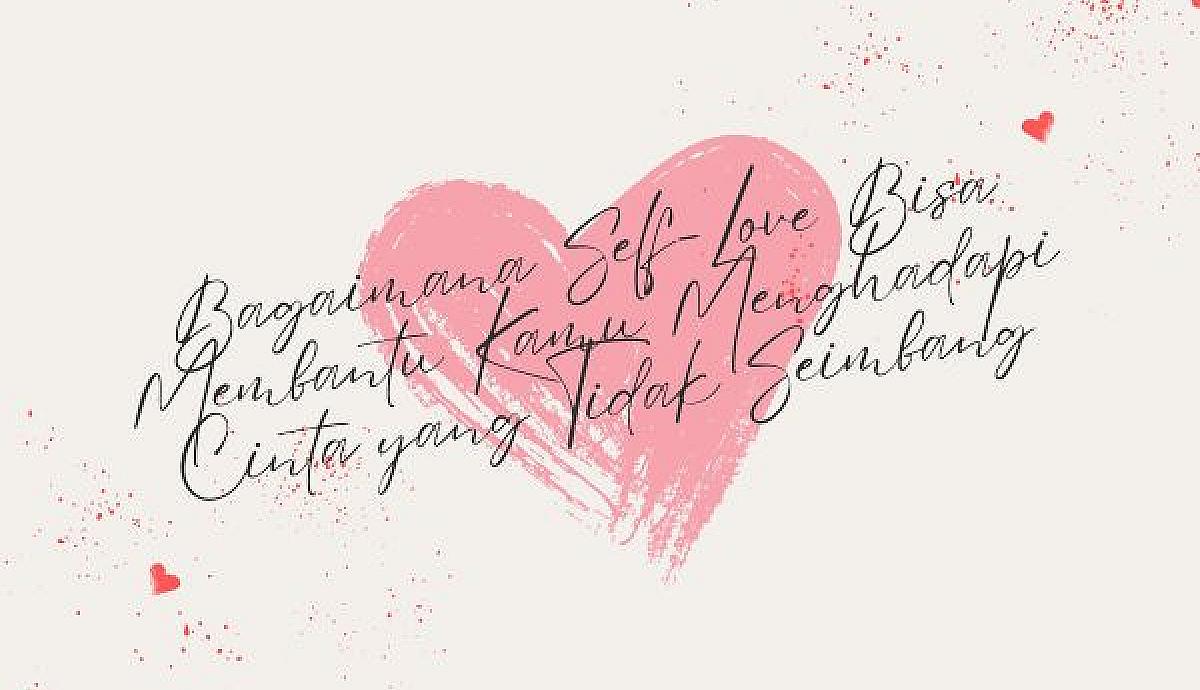 Bagaimana Self-Love Bisa
Membantu Kamu Menghadapi
Cinta yang Tidak Seimbang